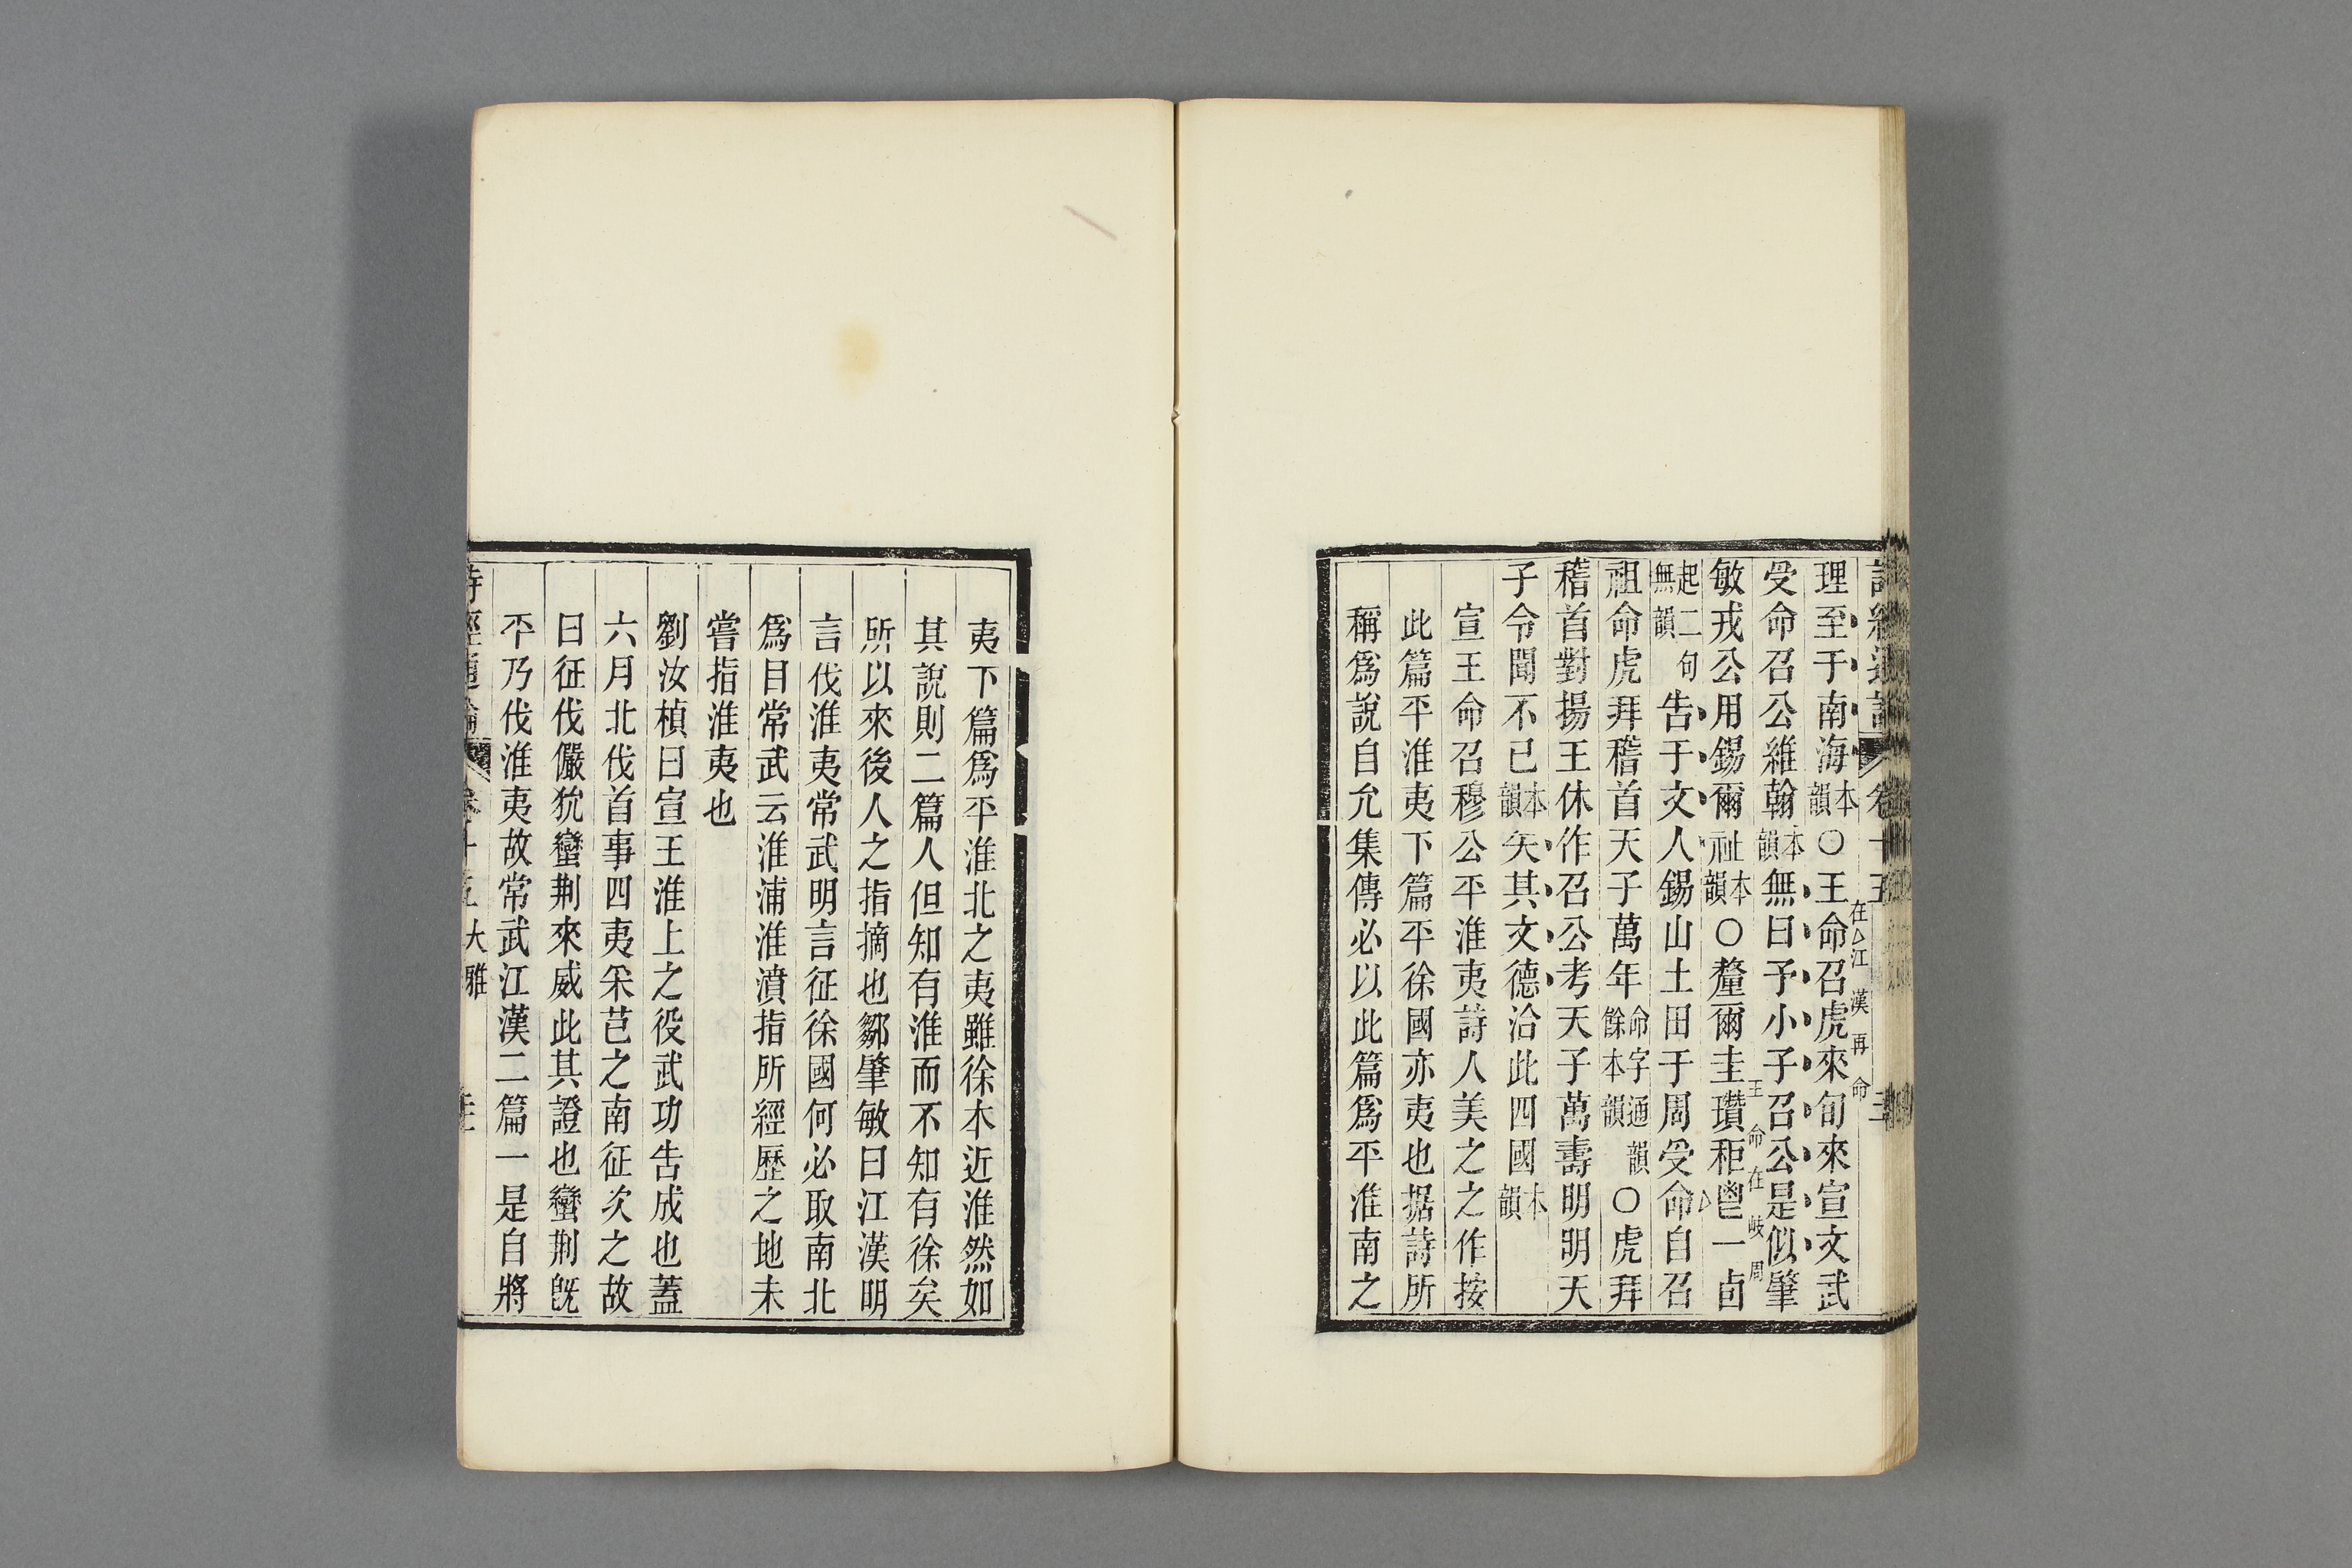 詩經通論 卷十五
理至于南海本韻○王命召虎來旬來宣文武
在江漢再命
受命召公維翰本韻無曰予小子召公是似肇
敏戎公用錫爾祉本韻○釐爾圭瓚秬鬯一卣
王命在岐周
起二句無韻告于文人錫山土田于周受命自召
祖命虎拜稽首天子萬年命字通韻餘本韻○虎拜
稽首對揚王休作召公考天子萬壽明明天
子令聞不已本韻矢其文德洽此四國本韻
宣王命召穆公平淮夷詩人美之之作按
此篇平淮夷下篇平徐國亦夷也据詩所
稱爲說自允集傳必以此篇爲平淮南之
夷下篇爲平淮北之夷雖徐本近淮然如
其說則二篇人但知有淮而不知有徐矣
所以來後人之指摘也鄒肇敏曰江漢明
言伐淮夷常武明言征徐國何必取南北
爲目常武云淮浦淮濆指所經歷之地未
嘗指淮夷也
劉汝楨曰宣王淮上之役武功告成也蓋
六月北伐首事四夷采芑之南征次之故
曰征伐儼狁蠻荆來威此其證也蠻荆旣
平乃伐淮夷故常武江漢二篇一是自將
詩經通論 卷十五 大雅